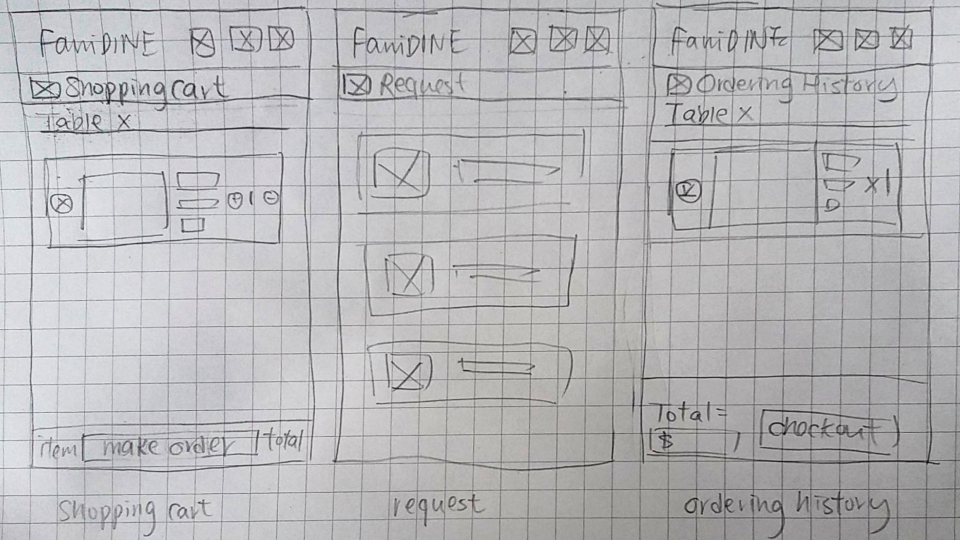 FamiDINE
Shopping cart
Table x
+ 1 -
item make order total
shopping cart
FamiDINE
Request
request
FamiDINE
Ordering History
Table x
x1
Total=
$
checkout
ordering history